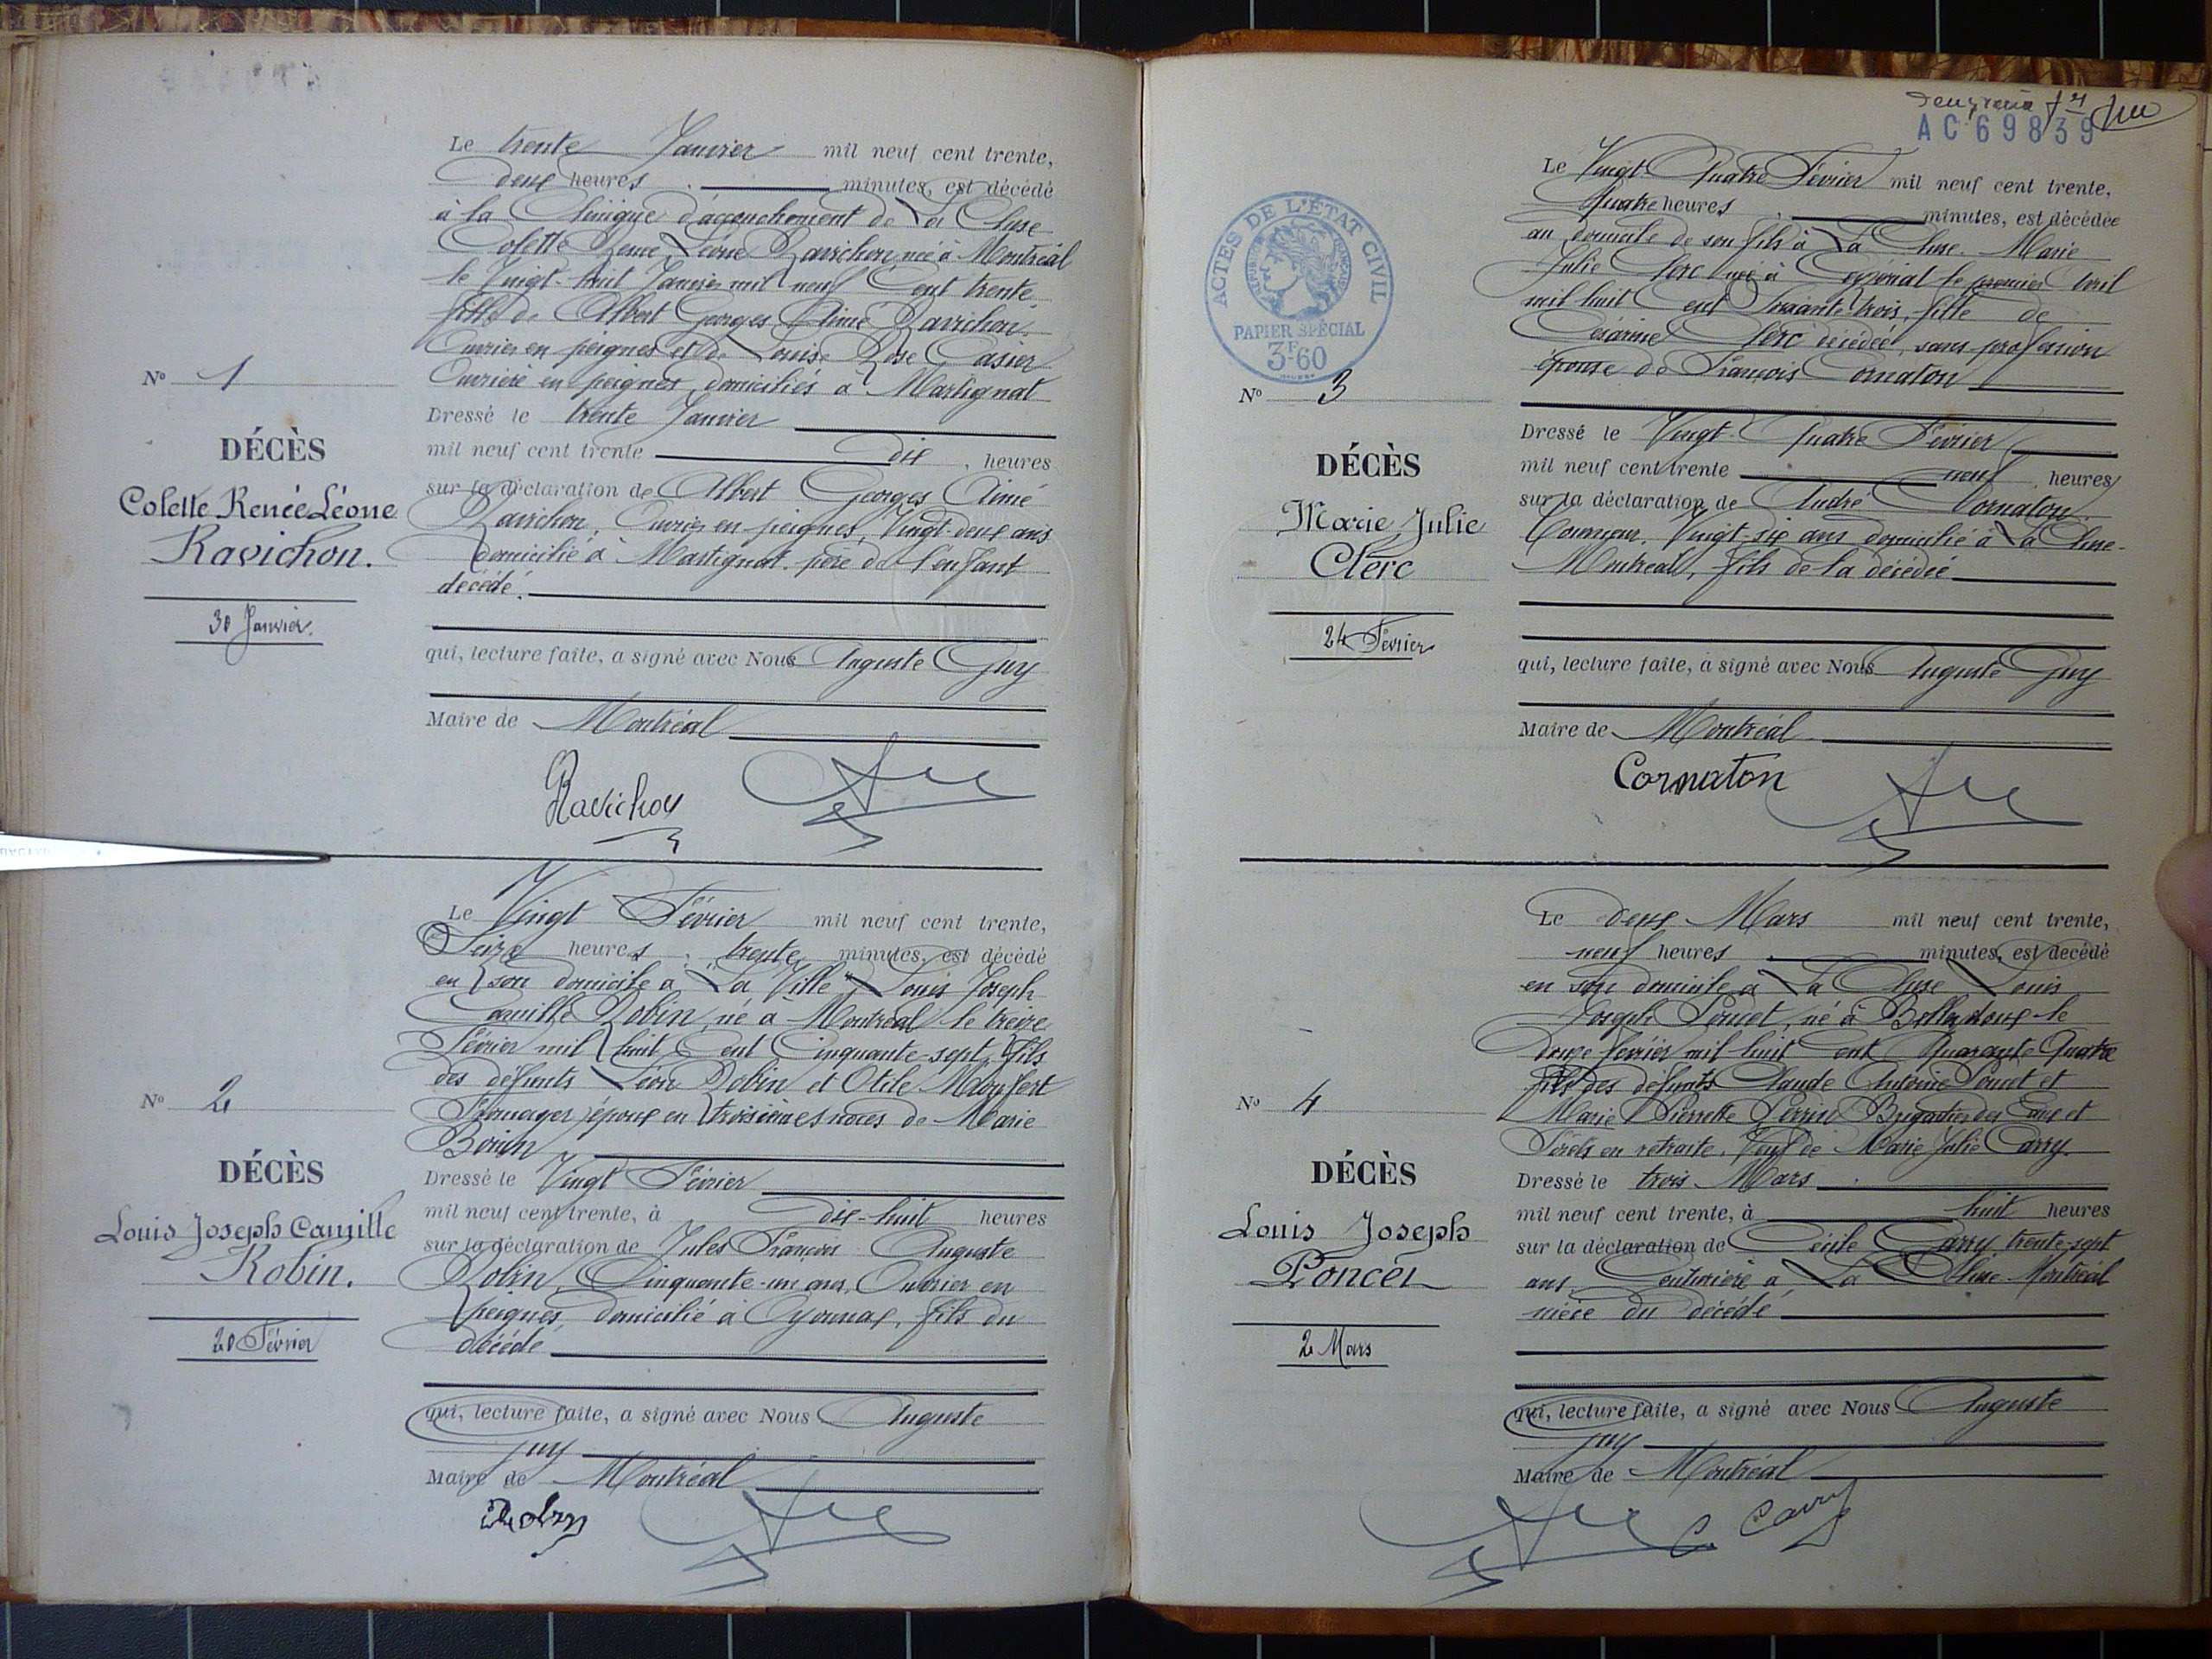 Le trente Janvier mil neuf cent trente,
deux heures minutes, est décédé
à la Clinique d'accouchement de La Cluse
Colette Renée Léone Ravichon née à Montréal
le Vingt-huit Janvier mil neuf Cent trente
fille de Albert Georges Aimé Ravichon
Ouvrier en peignes et de Louise Rose Casier
Ouvrière en peignes, domiciliés à Martignat
Nº 1
DÉCÈS
Colette Renée Léone
Ravichon.
30 Janvier.
Dressé le trente Janvier
mil neuf cent trente dix heures
sur la déclaration de Albert Georges Aimé
Ravichon, Ouvrier en peignes, Vingt-deux ans
domicilié à Martignat. père de l'enfant
décédé.
qui, lecture faite, a signé avec Nous Auguste Guy
Maire de Montréal
Ravichon
Le Vingt Février mil neuf cent trente,
Seize heures trente minutes, est décédé
en son domicile à La Ville, Louis Joseph
Camille Robin, né à Montréal le treize
Février mil huit Cent Cinquante-sept, fils
des défunts Léon Robin et Otile Monfort
Fromager, époux en troisièmes noces de Marie
Nº 2
DÉCÈS
Louis Joseph Camille
Robin.
20 Février
Dressé le Vingt Février
mil neuf cent trente, à dix-huit heures
sur la déclaration de Jules François Auguste
Robin, Cinquante-un ans, Ouvrier en
peignes, domicilié à Oyonnax, fils du
décédé
qui, lecture faite, a signé avec Nous Auguste
Guy
Maire de Montréal
Robin
AC 69839
ACTES DE L'ÉTAT CIVIL
PAPIER SPÉCIAL
3F60
Le Vingt Quatre Février mil neuf cent trente,
Quatre heures minutes, est décédée
au domicile de son fils à La Cluse. Marie
Julie Clerc née à le premier Avril
mil huit Cent Soixante trois, fille de
Césarine Clerc décédée, sans profession
épouse de François Cornaton
Nº 3
DÉCÈS
Marie Julie
Clerc
24 Février
Dressé le Vingt-Quatre Février
mil neuf cent trente neuf heures
sur la déclaration de André Cornaton
Vingt-six ans domicilié à La Cluse-
Montréal, fils de la décédée
qui, lecture faite, a signé avec Nous Auguste Guy
Maire de Montréal
Cornaton
Le deux Mars mil neuf cent trente,
neuf heures minutes, est décédé
en son domicile à La Cluse Louis
Joseph Poncet, né à Belleydoux le
douze février mil huit cent Quarante Quatre
fils des défunts Claude Antoine Poncet et
Marie Pierrette Perrin Brigadier des Eaux et
Forêts en retraite, Veuf de Marie Julie Carry.
Nº 4
DÉCÈS
Louis Joseph
Poncet
2 Mars
Dressé le trois Mars
mil neuf cent trente, à huit heures
sur la déclaration de Cécile Carry, trente-sept
ans, Couturière à La Cluse-Montréal
nièce du décédé
qui, lecture faite, a signé avec Nous Auguste
Guy
Maire de Montréal
C. Carry